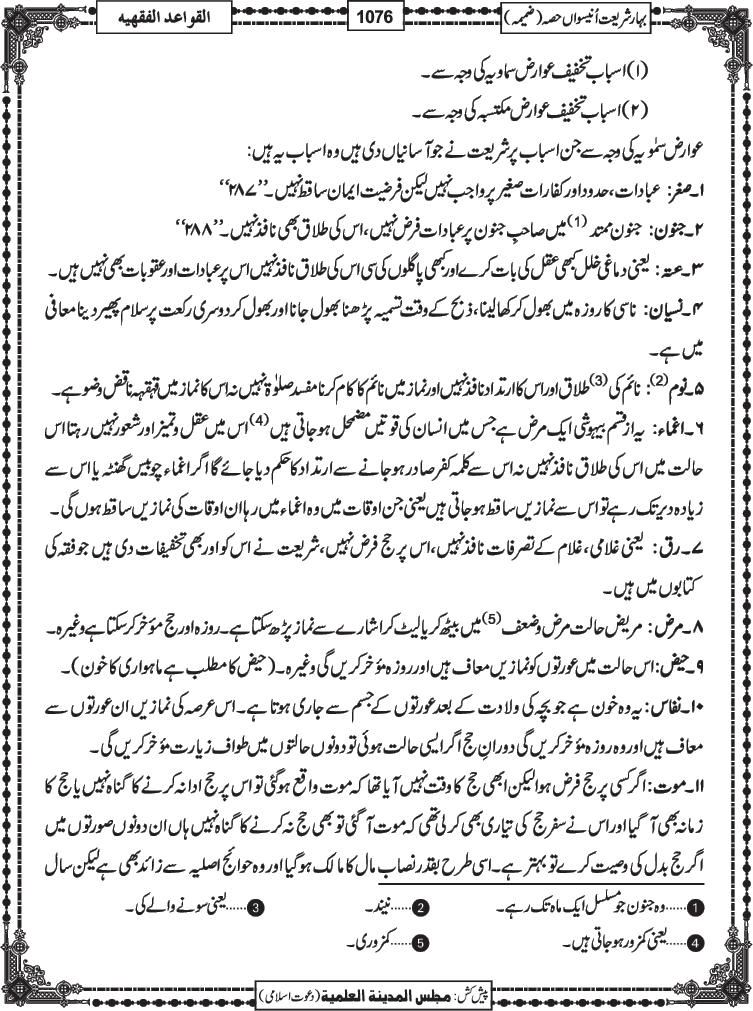 بہار شریعت اُنیسواں حصہ (ضمیمہ)
1076
القواعد الفقهيه
(۱) اسباب تخفیف عوارض سماویہ کی وجہ سے۔
(۲) اسباب تخفیف عوارض مکتسبہ کی وجہ سے۔
عوارض سمٰویہ کی وجہ سے جن اسباب پر شریعت نے جو آسانیاں دی ہیں وہ اسباب یہ ہیں:
۱۔صغر: عبادات، حدود اور کفارات صغیر پر واجب نہیں لیکن فرضیت ایمان ساقط نہیں۔ ’’۲۸۷‘‘
۲۔جنون: جنون ممتد (1) میں صاحبِ جنون پر عبادات فرض نہیں، اس کی طلاق بھی نافذ نہیں۔ ’’۲۸۸‘‘
۳۔عتہ: یعنی دماغی خلل کبھی عقل کی بات کرے اور کبھی پاگلوں کی سی اس کی طلاق نافذ نہیں اس پر عبادات اور عقوبات بھی نہیں ہیں۔
۴۔نسیان: ناسی کا روزہ میں بھول کر کھا لینا، ذبح کے وقت تسمیہ پڑھنا بھول جانا اور بھول کر دوسری رکعت پر سلام پھیر دینا معافی
میں ہے۔
۵۔نوم (2): نائم کی (3) طلاق اور اس کا ارتداد نافذ نہیں اور نماز میں نائم کا کام کرنا مفسد صلوٰۃ نہیں نہ اس کا نماز میں قہقہہ ناقض وضو ہے۔
۶۔اغماء: یہ از قسم بیہوشی ایک مرض ہے جس میں انسان کی قوتیں مضمحل ہو جاتی ہیں (4) اس میں عقل و تمیز اور شعور نہیں رہتا اس
حالت میں اس کی طلاق نافذ نہیں نہ اس سے کلمہ کفر صادر ہو جانے سے ارتداد کا حکم دیا جائے گا اگر اغماء چوبیس گھنٹہ یا اس سے
زیادہ دیر تک رہے تو اس سے نمازیں ساقط ہو جاتی ہیں یعنی جن اوقات میں وہ اغماء میں رہا ان اوقات کی نمازیں ساقط ہوں گی۔
۷۔رق: یعنی غلامی، غلام کے تصرفات نافذ نہیں، اس پر حج فرض نہیں، شریعت نے اس کو اور بھی تخفیفات دی ہیں جو فقہ کی
کتابوں میں ہیں۔
۸۔مرض: مریض حالت مرض و ضعف (5) میں بیٹھ کر یا لیٹ کر اشارے سے نماز پڑھ سکتا ہے۔ روزہ اور حج مؤخر کر سکتا ہے وغیرہ۔
۹۔حیض: اس حالت میں عورتوں کو نمازیں معاف ہیں اور روزہ مؤخر کریں گی وغیرہ۔ (حیض کا مطلب ہے ماہواری کا خون)۔
۱۰۔نفاس: یہ وہ خون ہے جو بچہ کی ولادت کے بعد عورتوں کے جسم سے جاری ہوتا ہے۔ اس عرصہ کی نمازیں ان عورتوں سے
معاف ہیں اور وہ روزہ مؤخر کریں گی دورانِ حج اگر ایسی حالت ہوئی تو دونوں حالتوں میں طواف زیارت مؤخر کریں گی۔
۱۱۔موت: اگر کسی پر حج فرض ہوا لیکن ابھی حج کا وقت نہیں آیا تھا کہ موت واقع ہوگئی تو اس پر حج ادا نہ کرنے کا گناہ نہیں یا حج کا
زمانہ بھی آ گیا اور اس نے سفر حج کی تیاری بھی کر لی تھی کہ موت آ گئی تو بھی حج نہ کرنے کا گناہ نہیں ہاں ان دونوں صورتوں میں
اگر حج بدل کی وصیت کرے تو بہتر ہے۔ اسی طرح بقدر نصاب مال کا مالک ہو گیا اور وہ حوائج اصلیہ سے زائد بھی ہے لیکن سال
1 ......وہ جنون جو مسلسل ایک ماہ تک رہے۔ 2 ......نیند۔ 3 ......یعنی سونے والے کی۔
4 ......یعنی کمزور ہو جاتی ہیں۔ 5 ......کمزوری۔
پیش کش: مجلس المدينة العلمية (دعوت اسلامی)